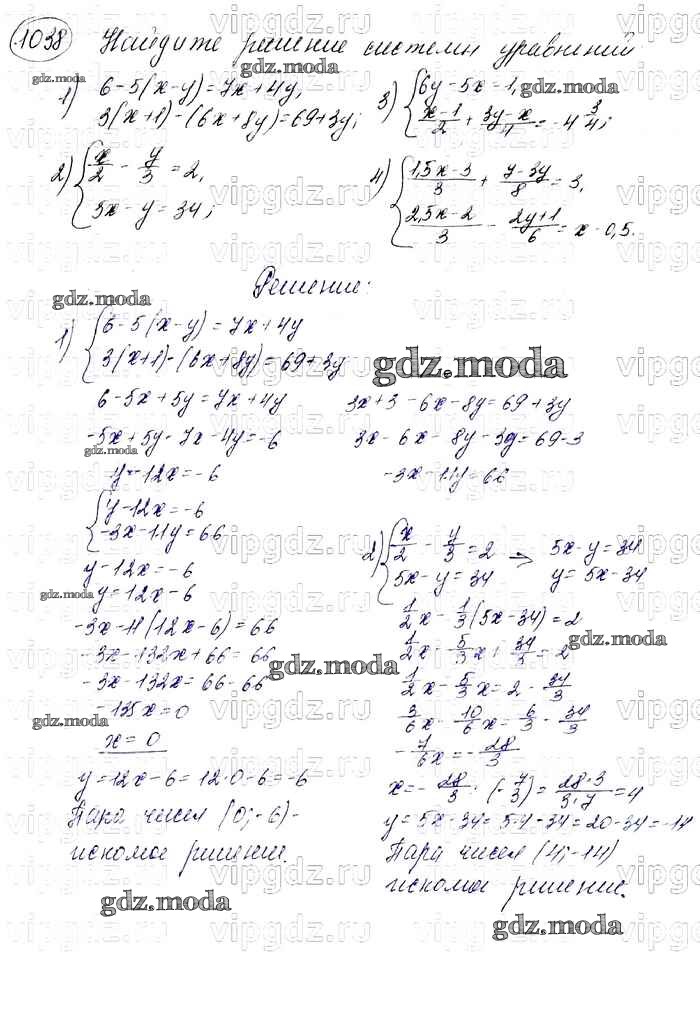 1038 Найдите решение системы уравнений
1) 6-5(x-y)=7x+4y,
3(x+1)-(6x+8y)=69+3y;
2) { x/2 - y/3 = 2,
5x-y=34;
3) { 6y-5x=1,
(x-1)/2 + (3y-x)/4 = -4 3/4;
4) { (1,5x-3)/3 + (7-3y)/8 = 3,
(2,5x-2)/3 - (2y+1)/6 = x-0,5.
Решение:
1) { 6-5(x-y)=7x+4y
3(x+1)-(6x+8y)=69+3y
6-5x+5y=7x+4y
-5x+5y-7x-4y=-6
y-12x=-6
3x+3-6x-8y=69+3y
3x-6x-8y-3y=69-3
-3x-11y=66
{ y-12x=-6
-3x-11y=66
y-12x=-6
y=12x-6
-3x-11(12x-6)=66
-3x-132x+66=66
-3x-132x=66-66
-135x=0
x=0
y=12x-6=12·0-6=-6
Пара чисел (0;-6)-
искомое решение.
2) { x/2 - y/3 = 2
5x-y=34
→ 5x-y=34
y=5x-34
1/2x - 1/3(5x-34)=2
1/2x - 5/3x + 34/3 = 2
1/2x - 5/3x = 2 - 34/3
3/6x - 10/6x = 6/3 - 34/3
-7/6x = -28/3
x = -28/3 · (-7/3) = 28·3/3·7 = 4
y=5x-34=5·4-34=20-34=-14
Пара чисел (4;-14)
искомое решение.
gdz.moda
vipgdz.ru